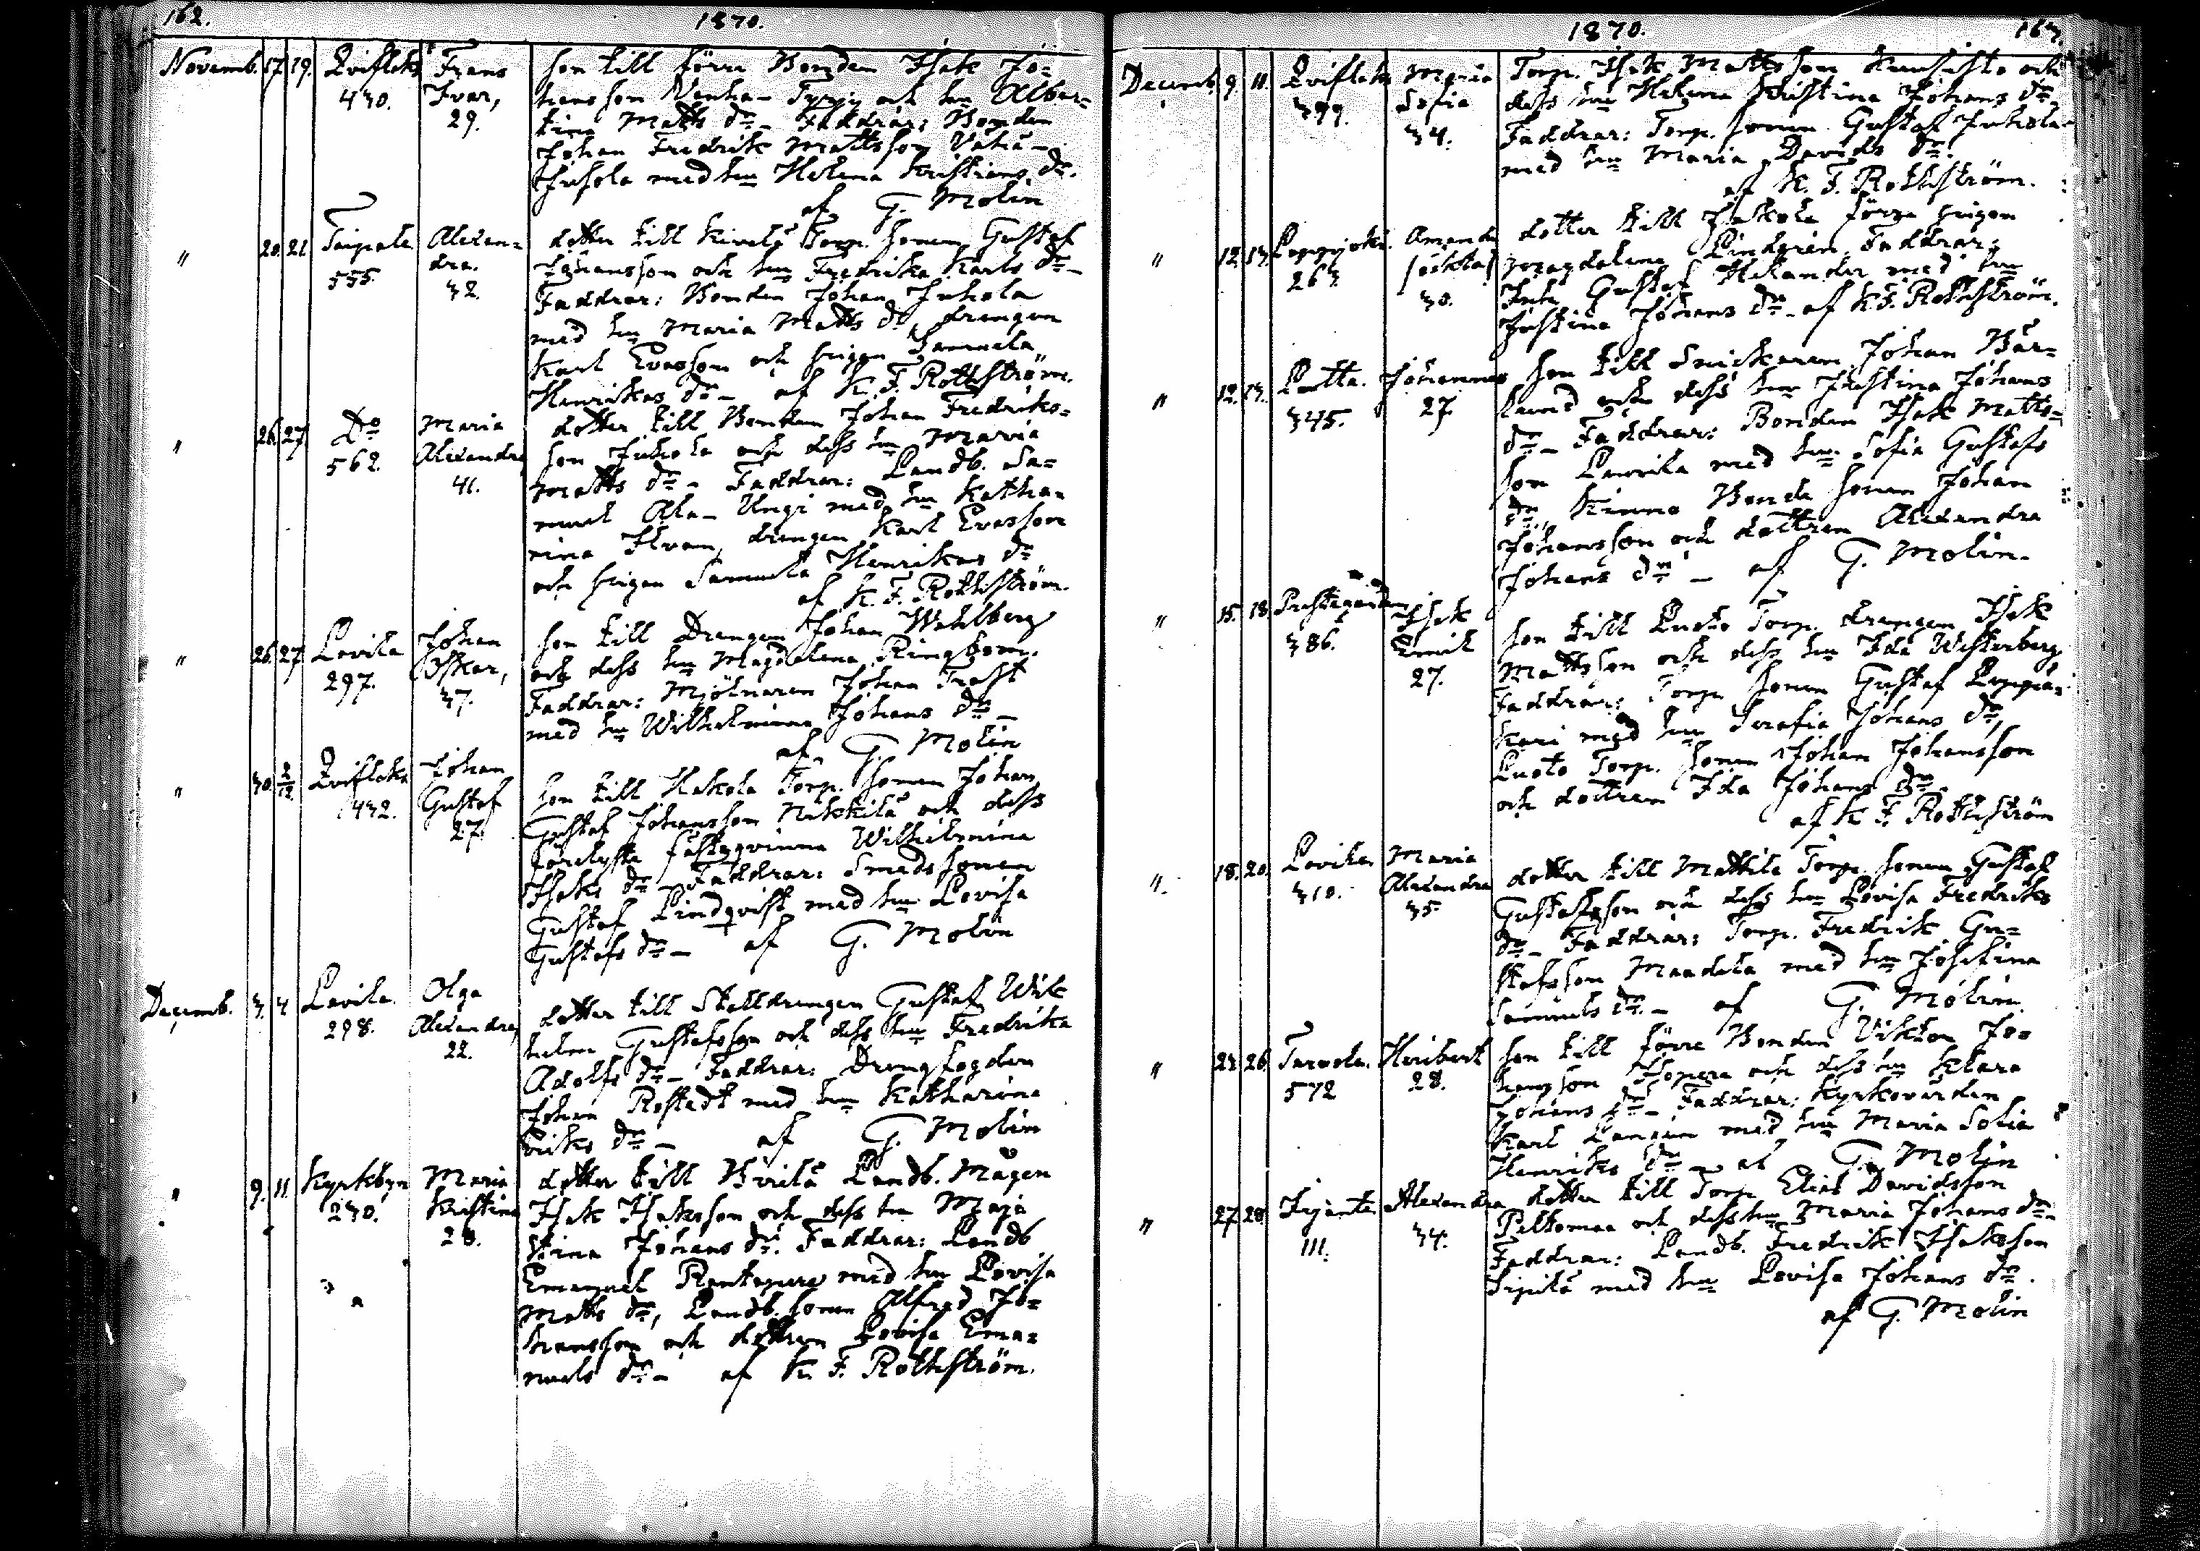 162.
1870.
Novemb. 17 19. Qviflaks Frans son till förre Bonden Isak Jo-
430. Ivar, hansson Vanha- och hu Alber-
29. tina Matts dr - Faddrar: Bonden
Johan Fredrik Mattsson Vähä-
Jussola med hu Helena Kristians dr.
af G. Molin
" 20. 21. Taipale Alexan- dotter till Kivelä Torp. sonen Gustaf
555. dra. Johansson och hu Fredrika Karls dr -
32. Faddrar: Bonden Johan Juhola
med hu Maria Matts dr, drengen
Karl Evasson och pigan Samuela
Henrikas dr - af K. F. Rothström.
" 26. 27 Do Maria dotter till Bonden Johan Fredriks-
562. Alexandra son Juhola och dess hu Maria
41. Matts dr - Faddrar: Landb. Sa-
muel Ala- Ungi med hu Katha-
rina drengen Karl Evasson
och pigan Samuela Henrikas dr
af K. F. Rothström.
" 26. 27 Lavila Johan son till Drengen Johan Wahlberg
297. Oskar, och dess hu Magdalena Ringbom.
37. Faddrar: Mjölnaren Johan Trast
med hu Wilhelmina Johans dr -
af G. Molin
" 30. 2/12. Qviflaks Johan son till Hakola Torp. sonen Johan
432. Gustaf Gustaf Johansson Nikkilä och dess
27. förelysta fästeqvinna Wilhelmina
Isaks dr - Faddrar: Smedssonen
Gustaf Lindqvist med hu Lovisa
Gustafs dr - af G. Molin
Decemb. 3. 4 Lavila Olga dotter till Stalldrengen Gustaf Wil
298. Alexandra, helm Gustafsson och dess hu Fredrika
22. Adolfs dr - Faddrar: Drengfogden
Johan Rostedt med hu Katharina
Eriks dr - af G. Molin
" 9. 11. Kyrkbyn Maria dotter till Birilä Landb. Mågen
230. Kristina Isak Isaksson och dess hu Maja
28. Stina Johans dr. Faddrar: Landb
Emanuel med hu Lovisa
Matts dr, Landb. sonen Alfred Jo-
hansson och dottren Lovisa Ema-
nuels dr - af K. F. Rothström.
1870.
163.
Decemb. 9. 11. Qviflaks Maria Torp. Isak Mattsson Kuusisto och
399. Sofia dess hu Helena Kristina Johans dr
34. Faddrar: Torp. sonen Gustaf Juhola
med hu Maria Davids dr.
af K. F. Rothström.
" 12. 13. Amanda dotter till Jaskola förra pigan
263 (oäkta) Magdalena Lindgren, Faddrar:
30. Inh. Gustaf Helander med hu
Justina Johans dr - af K. F. Rothström.
" 12. 13. Lautta. Johannes son till Snickaren Johan Bär-
345. 27. lund och dess hu Justina Johans
dr - Faddrar: Bonden Isak Matts-
son Laurila med hu Sofia Gustafs
dr, Kinno Bonde sonen Johan
Johansson och dottren Alexandra
Johans dr - af G. Molin.
" 15. 18 Prestegården Isak son till Luoto Torp. drengen Isak
386. Emil Mattsson och dess hu Ida Westerberg
27. Faddrar: Torp. sonen Gustaf
kari med hu Serafia Johans dr,
Luoto Torp. sonen Johan Johansson
och dottren Ida Johans dr -
af K F. Rothström
" 18. 20. Lavila. Maria dotter till Mattila Torp. sonen Gustaf
310. Alexandra Gustafsson och dess hu Lovisa Fredriks
35 dr - Faddrar: Torp. Fredrik Gu-
stafsson Mandela med hu Josefina
Samuels dr. - af G. Molin.
" 23. 26. Tarvola. Heribert son till förre Bonden Viktor Jo-
572 28. hansson och dess hu Klara
Johans dr - Faddrar: Kyrkovärden
Karl Langén med hu Maria Sofia
Henriks dr - af G. Molin
" 27. 28. Irjante Alexandra dotter till Torp. Elias Davidsson
111. 34. Peltomaa och dess hu Maria Johans dr -
Faddrar: Landb. Fredrik Isaksson
med hu Lovisa Johans dr.
af G. Molin